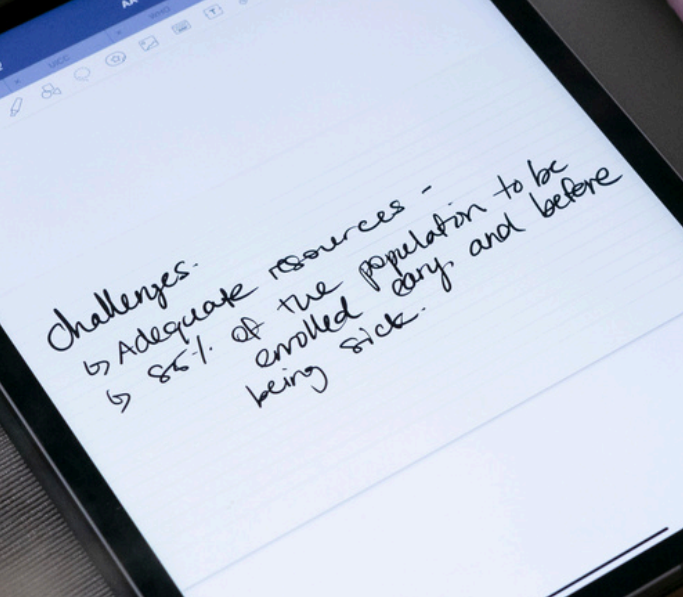 UCC
WHO
Challenges.
↳ Adequate resources -
↳ 85% of the population to be
enrolled eary and before
being sick.